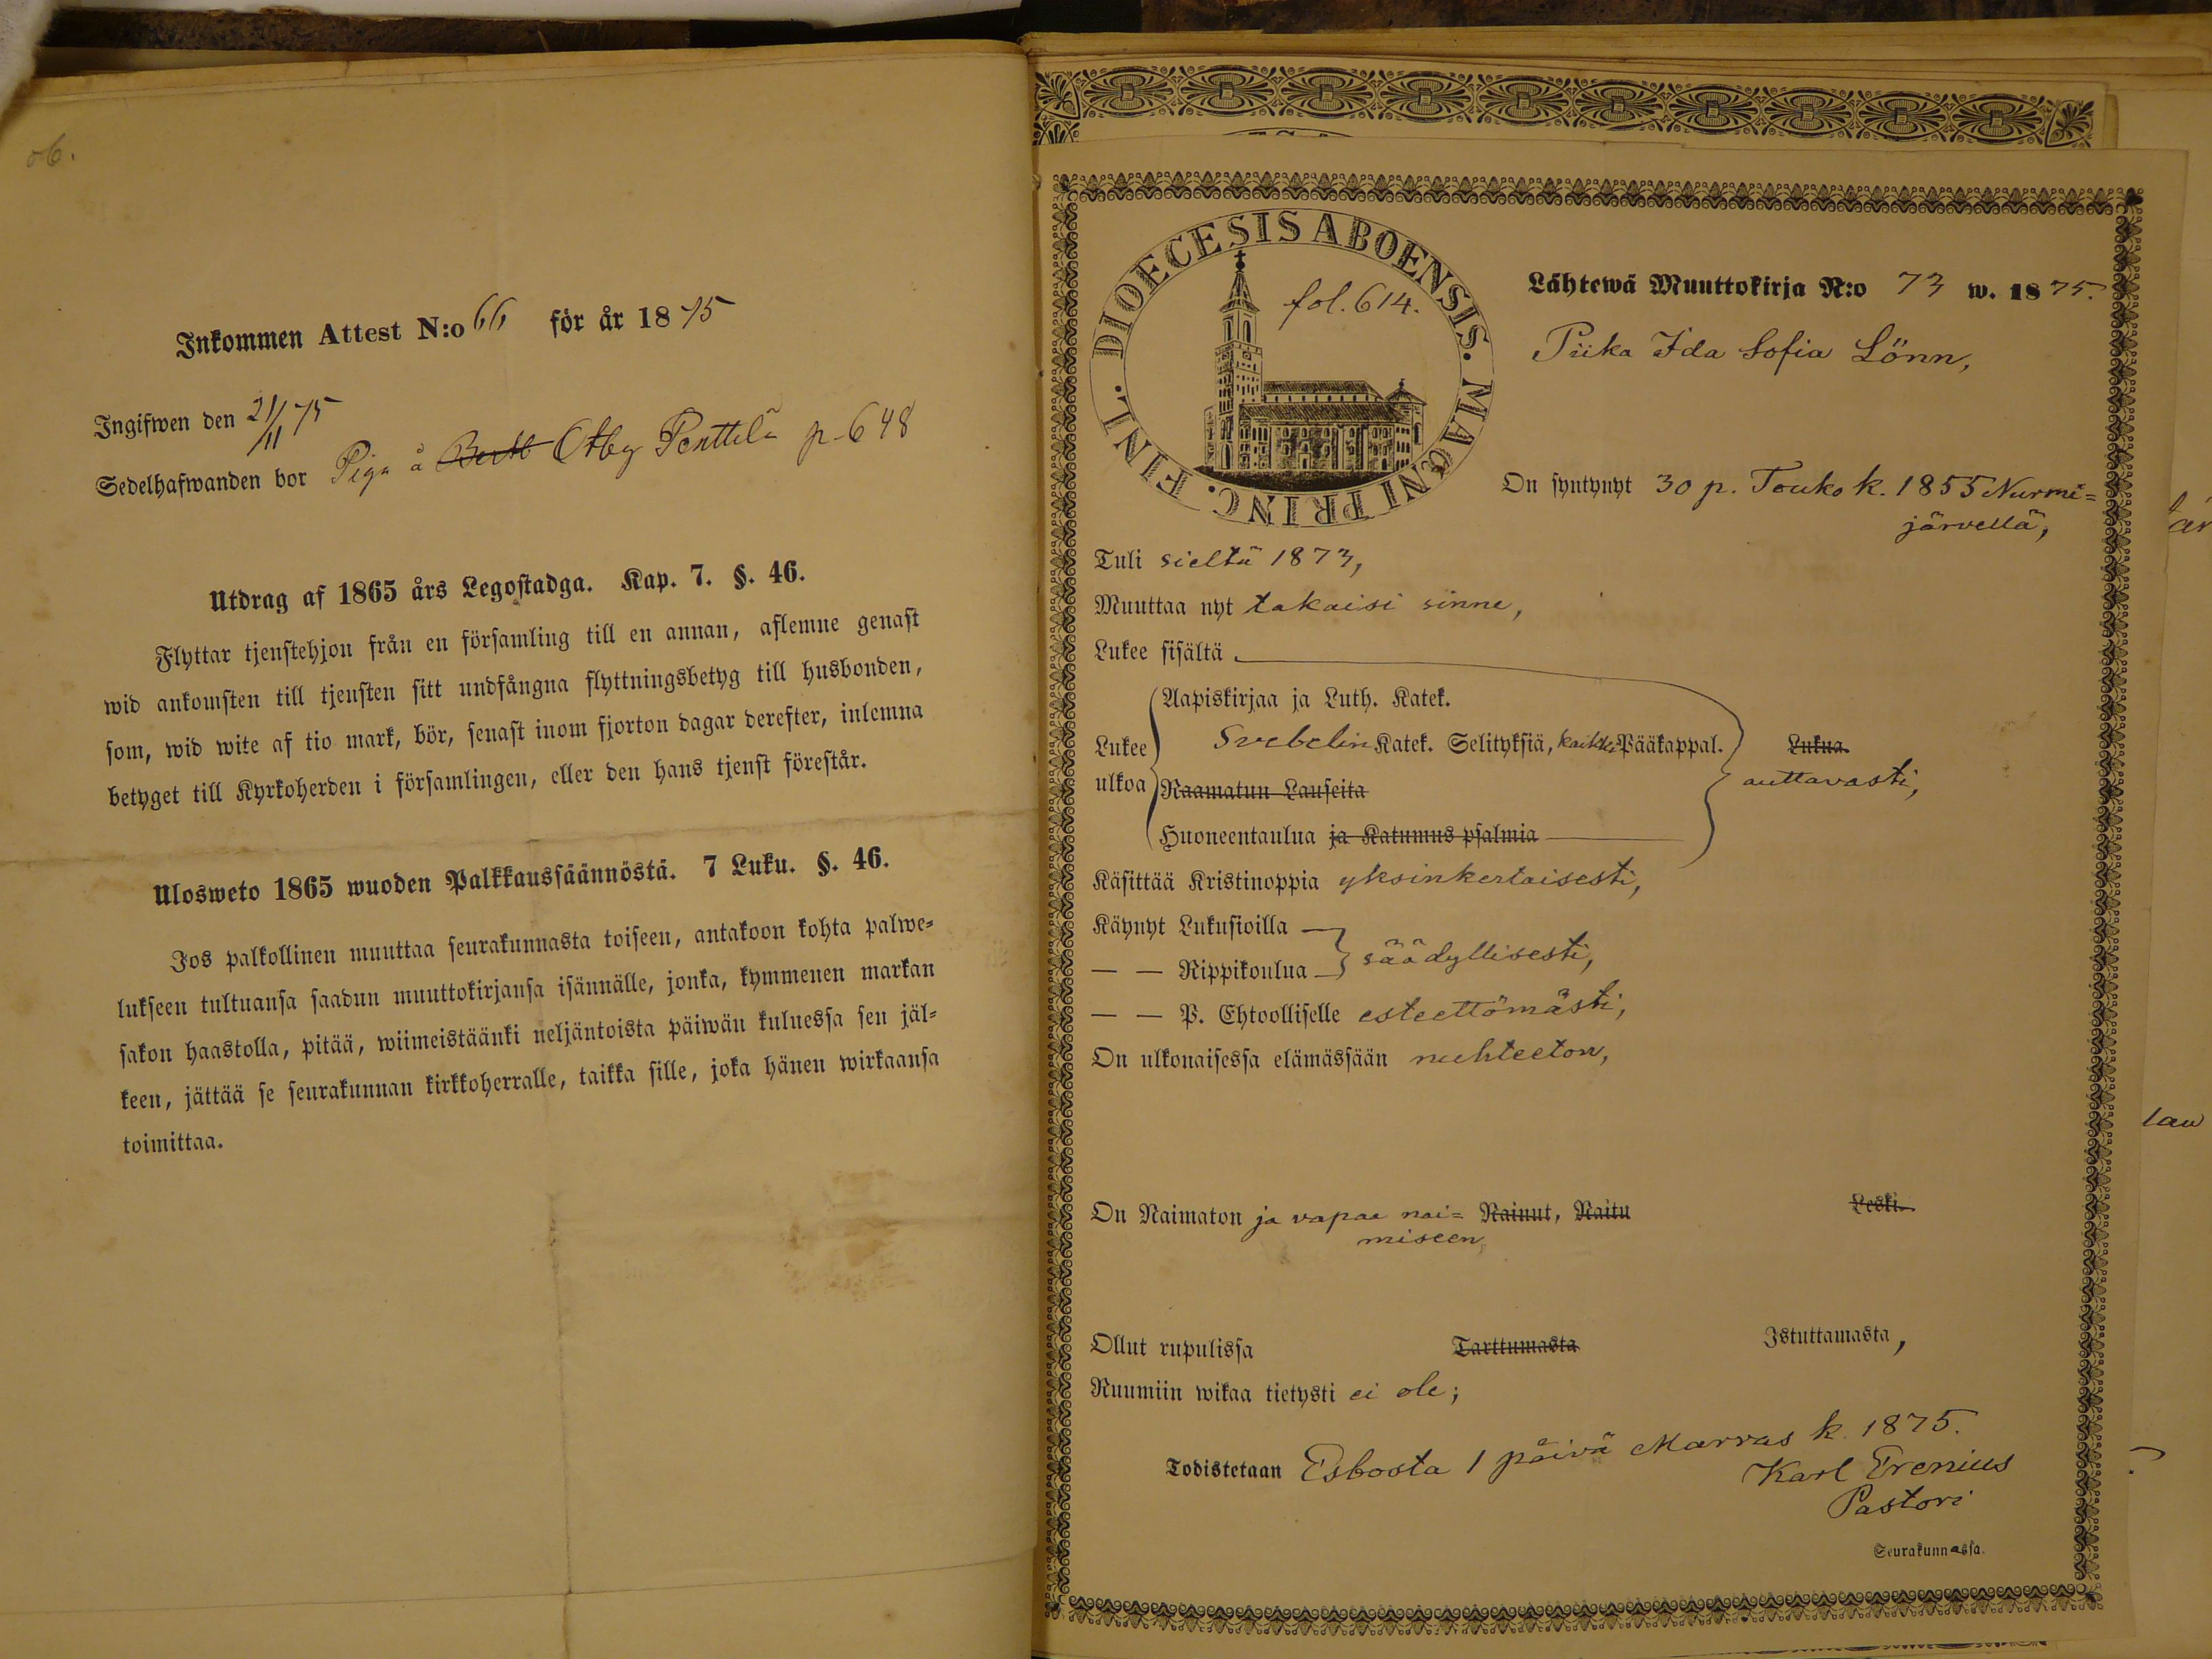 06.
Inkommen Attest N:o 66 för år 1875
Ingifwen den 21/11 75
Sedelhafwanden bor Piga å Otby Penttilä p. 648
Utdrag af 1865 års Legostadga. Kap. 7. §. 46.
Flyttar tjenstehjon från en församling till en annan, aflemne genast
wid ankomsten till tjensten sitt undfångna flyttningsbetyg till husbonden,
som, wid wite af tio mark, bör, senast inom fjorton dagar derefter, inlemna
betyget till Kyrkoherden i församlingen, eller den hans tjenst förestår.
Ulosweto 1865 wuoden Palkkaussäännöstä. 7 Luku. §. 46.
Jos palkollinen muuttaa seurakunnasta toiseen, antakoon kohta palwe=
lukseen tultuansa saadun muuttokirjansa isännälle, jonka, kymmenen markan
sakon haastolla, pitää, wiimeistäänki neljäntoista päiwän kuluessa sen jäl=
keen, jättää se seurakunnan kirkkoherralle, taikka sille, joka hänen wirkaansa
toimittaa.
DIOECESIS ABOENSIS. MAGNI PRINC. FINL.
fol. 614.
Lähtewä Muuttokirja N:o 73 w. 1875.
Piika Ida Sofia Lönn,
On syntynyt 30 p. Touko k. 1855 Nurmi=
järvellä,
Tuli sieltä 1873,
Muuttaa nyt takaisi sinne,
Lukee sisältä
Lukee ulkoa
Aapiskirjaa ja Luth. Katek.
Svebelin Katek. Selityksiä, kaikki Pääkappal.
Raamatun Lauseita
Huoneentaulua ja Katumus psalmia
Lukua.
auttavasti,
Käsittää Kristinoppia yksinkertaisesti,
Käynyt Lukusioilla
— — Rippikoulua säädyllisesti,
— — P. Ehtoolliselle esteettömästi,
On ulkonaisessa elämässään nuhteeton,
On Naimaton ja vapaa nai= Nainut, Naitu Leski.
miseen,
Ollut rupulissa Tarttumasta Istuttamasta,
Ruumiin wikaa tietysti ei ole;
Todistetaan Esbosta 1 päivä Marras k. 1875.
Karl Erenius
Pastori
Seurakunnassa.
lau